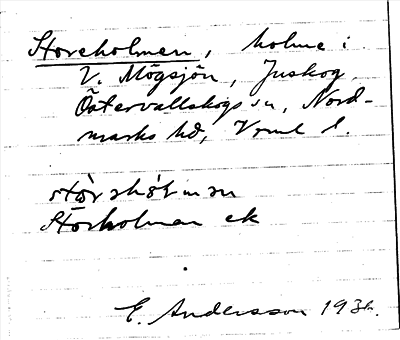 Storeholmen, holme i
V. Mögsjön, Juskog,
Östervallskogs sn, Nord-
marks hd, Vrml l.
Storholmen ek
E. Andersson 193